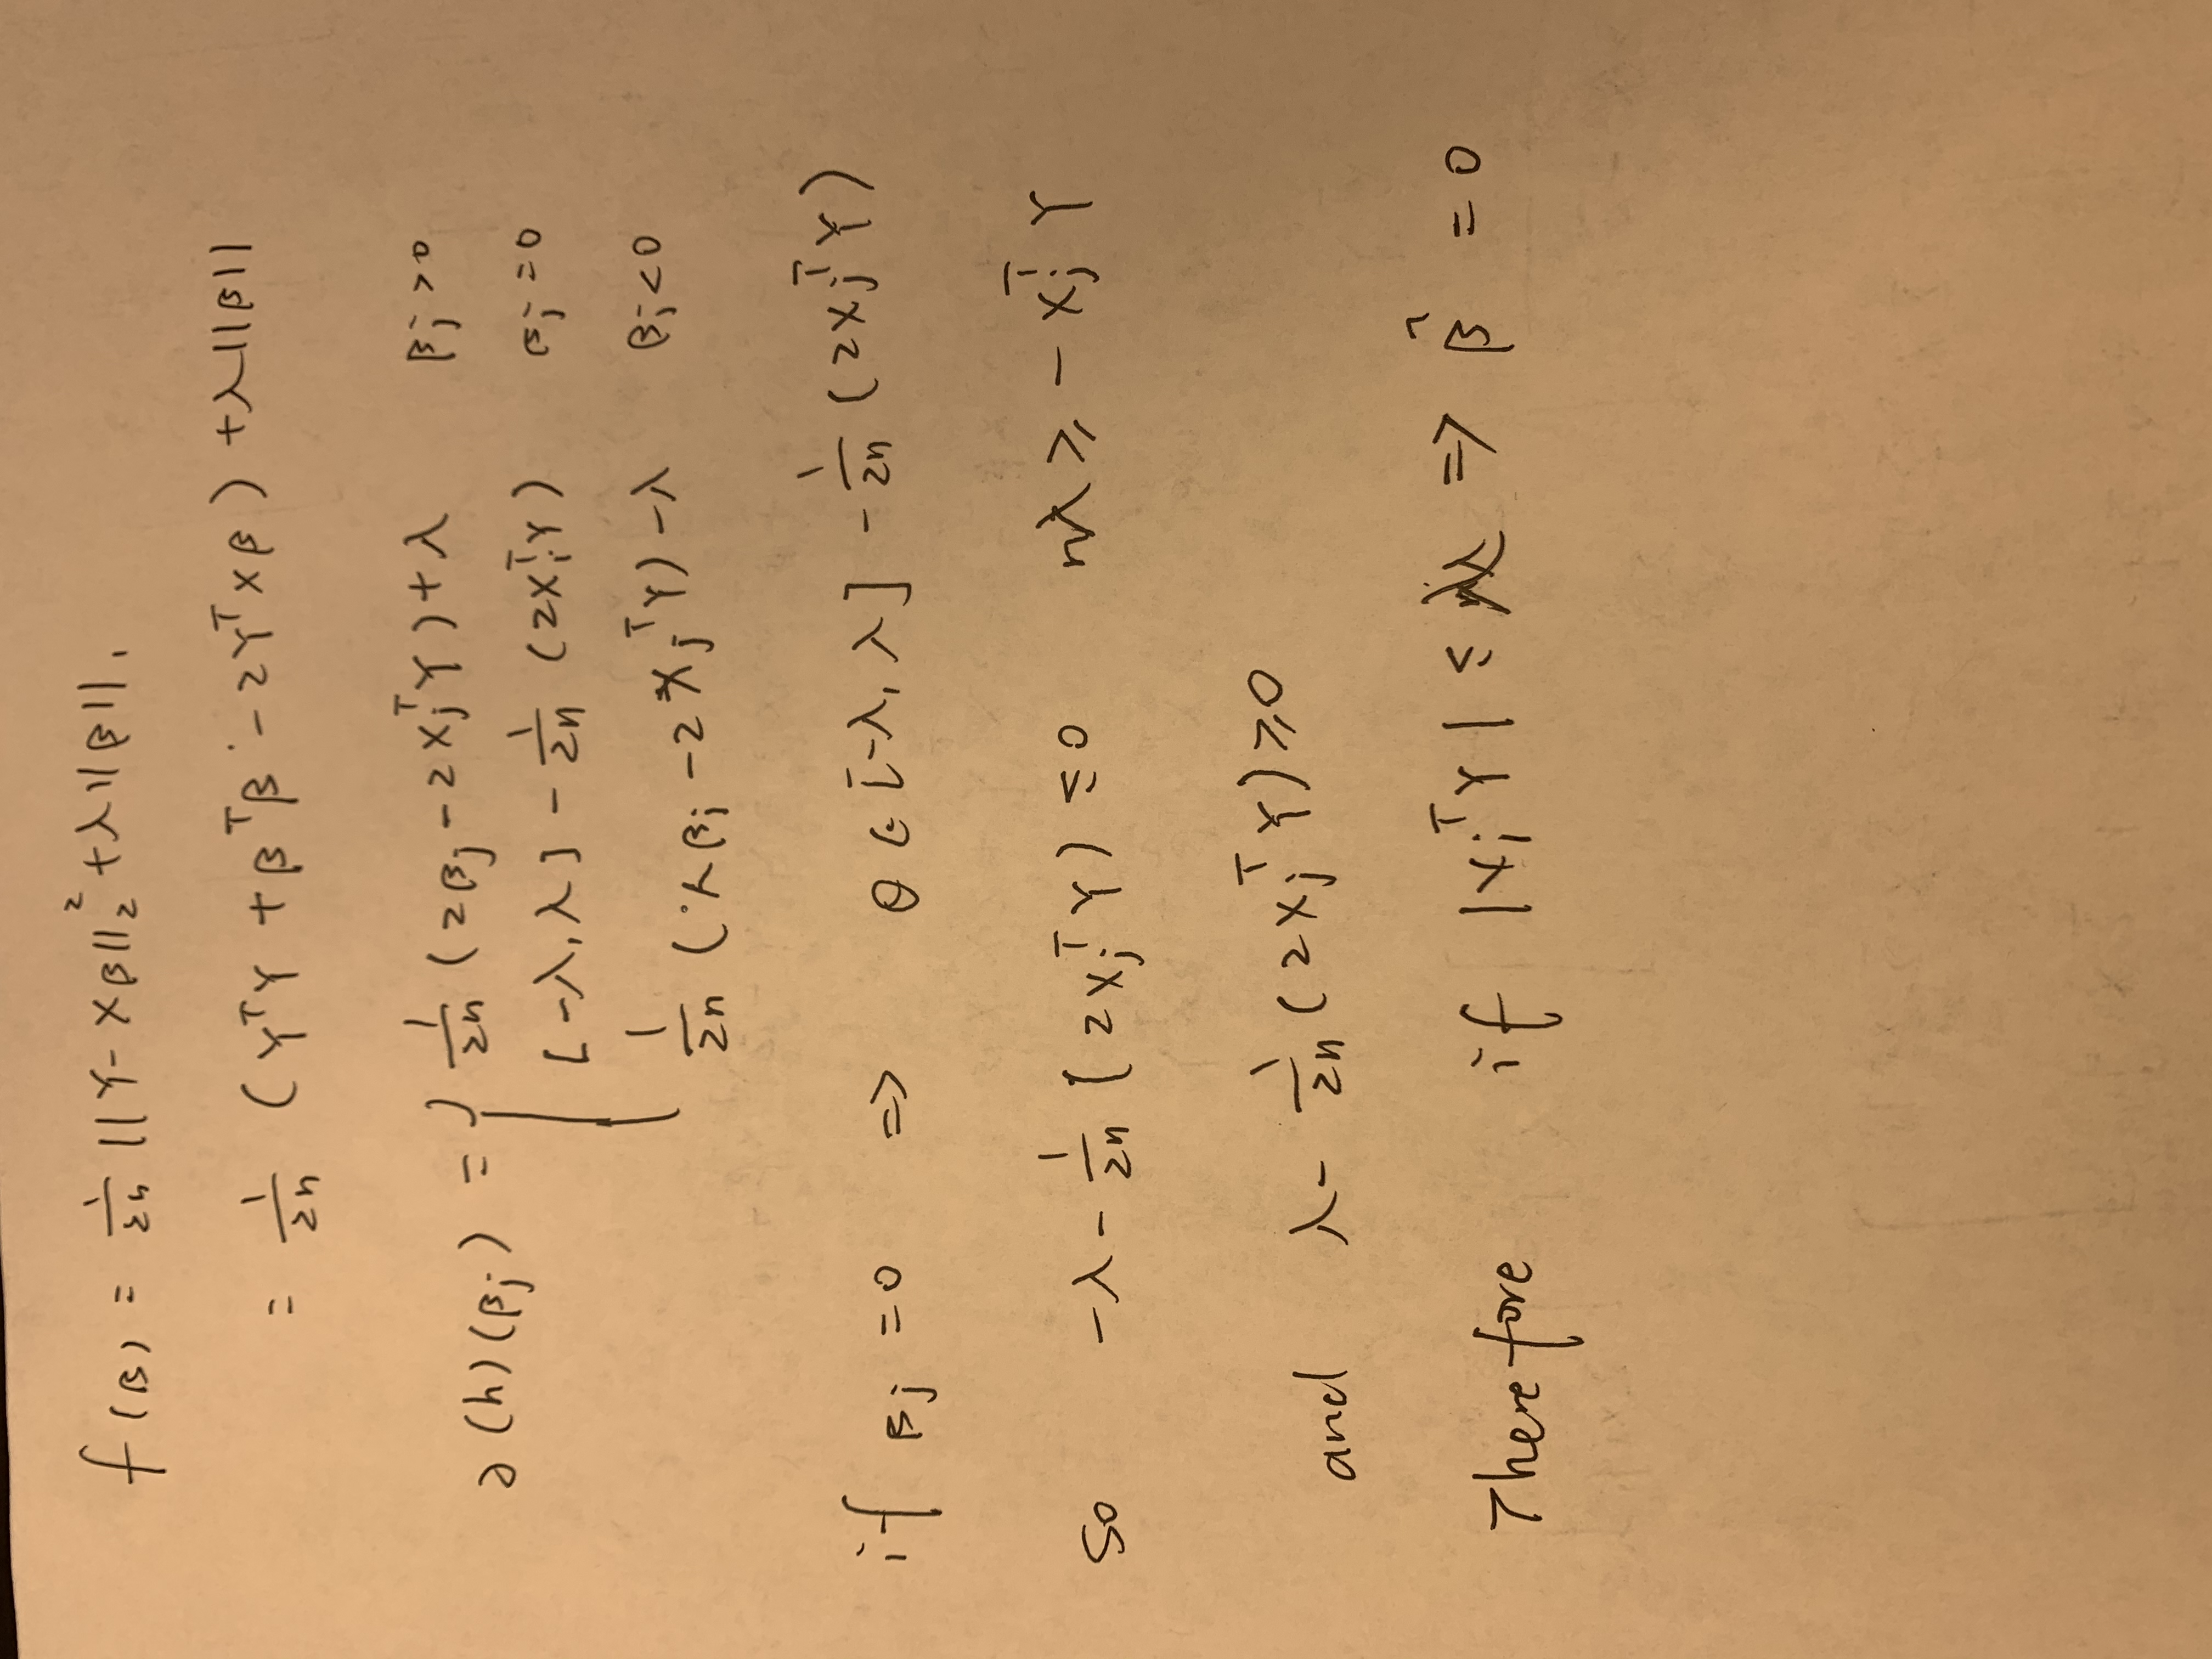 f(β) = 1/2n ||Y - Xβ||₂² + λ||β||₁
= 1/2n (YᵀY + βᵀβ - 2YᵀXβ) + λ||β||
∂(h)(βj) = { 1/2n (2βj - 2XjᵀY) + λ βj > 0
[-λ, λ] - 1/2n (2XjᵀY) βj = 0
1/2n (2βj - 2XjᵀY) - λ βj < 0
if βj = 0 => 0 ∈ [-λ, λ] - 1/2n (2XjᵀY)
so -λ - 1/2n (2XjᵀY) ≤ 0 nλ ≥ - XjᵀY
and λ - 1/2n (2XjᵀY) ≥ 0
Therefore if |XjᵀY| ≤ nλ => β̂ = 0